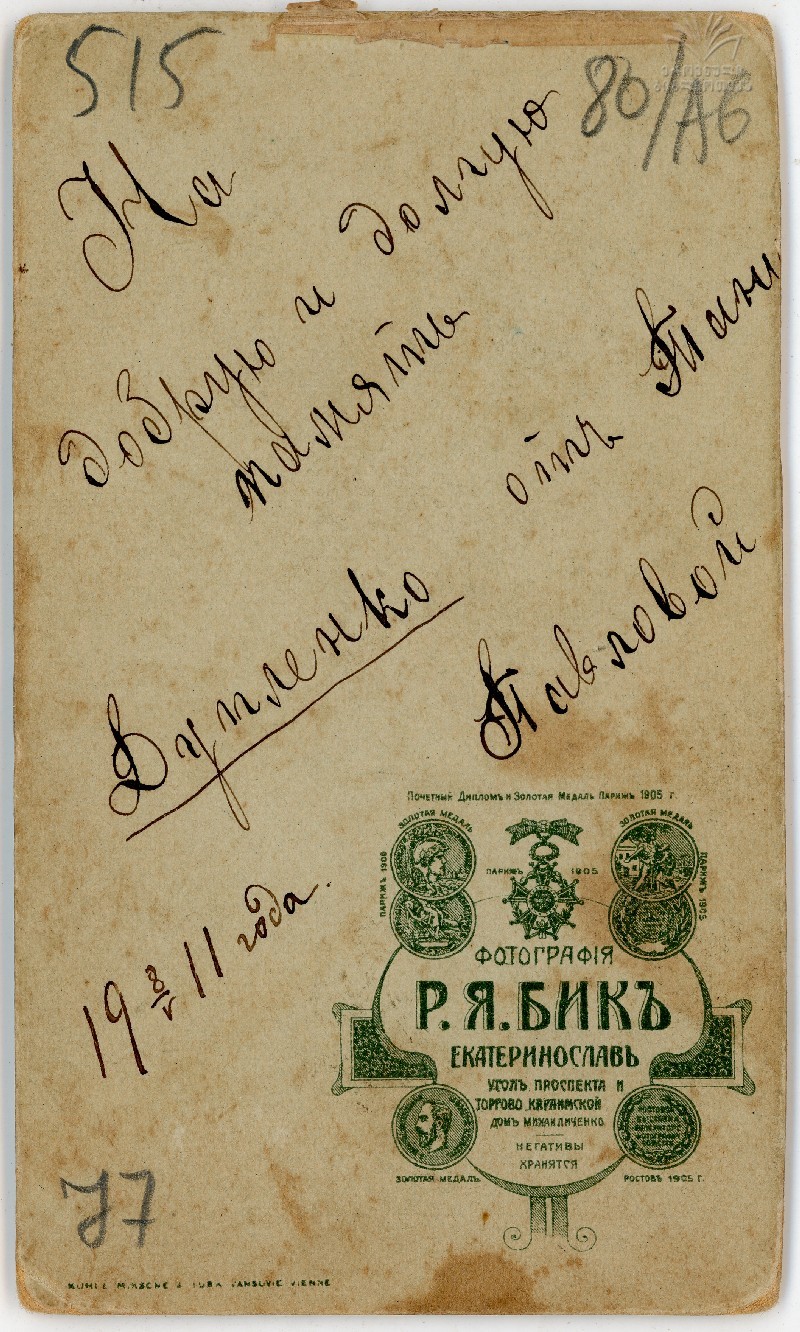 515
80/А6
ეროვნული
ბიბლიოთეკა
На
добрую и долгую
память
отъ Тани
Павловой
Дупленко
19 8/V 11 года.
Почетный Дипломъ и Золотая Медаль Парижъ 1905 г.
ЗОЛОТАЯ МЕДАЛЬ
ЗОЛОТАЯ МЕДАЛЬ
ПАРИЖЪ 1905
ПАРИЖЪ 1905
ФОТОГРАФІЯ
Р. Я. БИКЪ
ЕКАТЕРИНОСЛАВЪ
УГОЛЪ ПРОСПЕКТА И
ТОРГОВО КАРАИМСКОЙ
ДОМЪ МИХАЙЛИЧЕНКО
НЕГАТИВЫ
ХРАНЯТСЯ
ЗОЛОТАЯ МЕДАЛЬ
РОСТОВЪ 1905 Г.
77
VIENNE